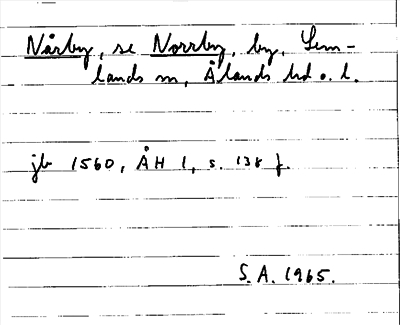 Nårby, se Norrby, by, Lem-
lands sn, Ålands hd o. l.
jb 1560, ÅH 1, s. 138 f.
S.A. 1965.